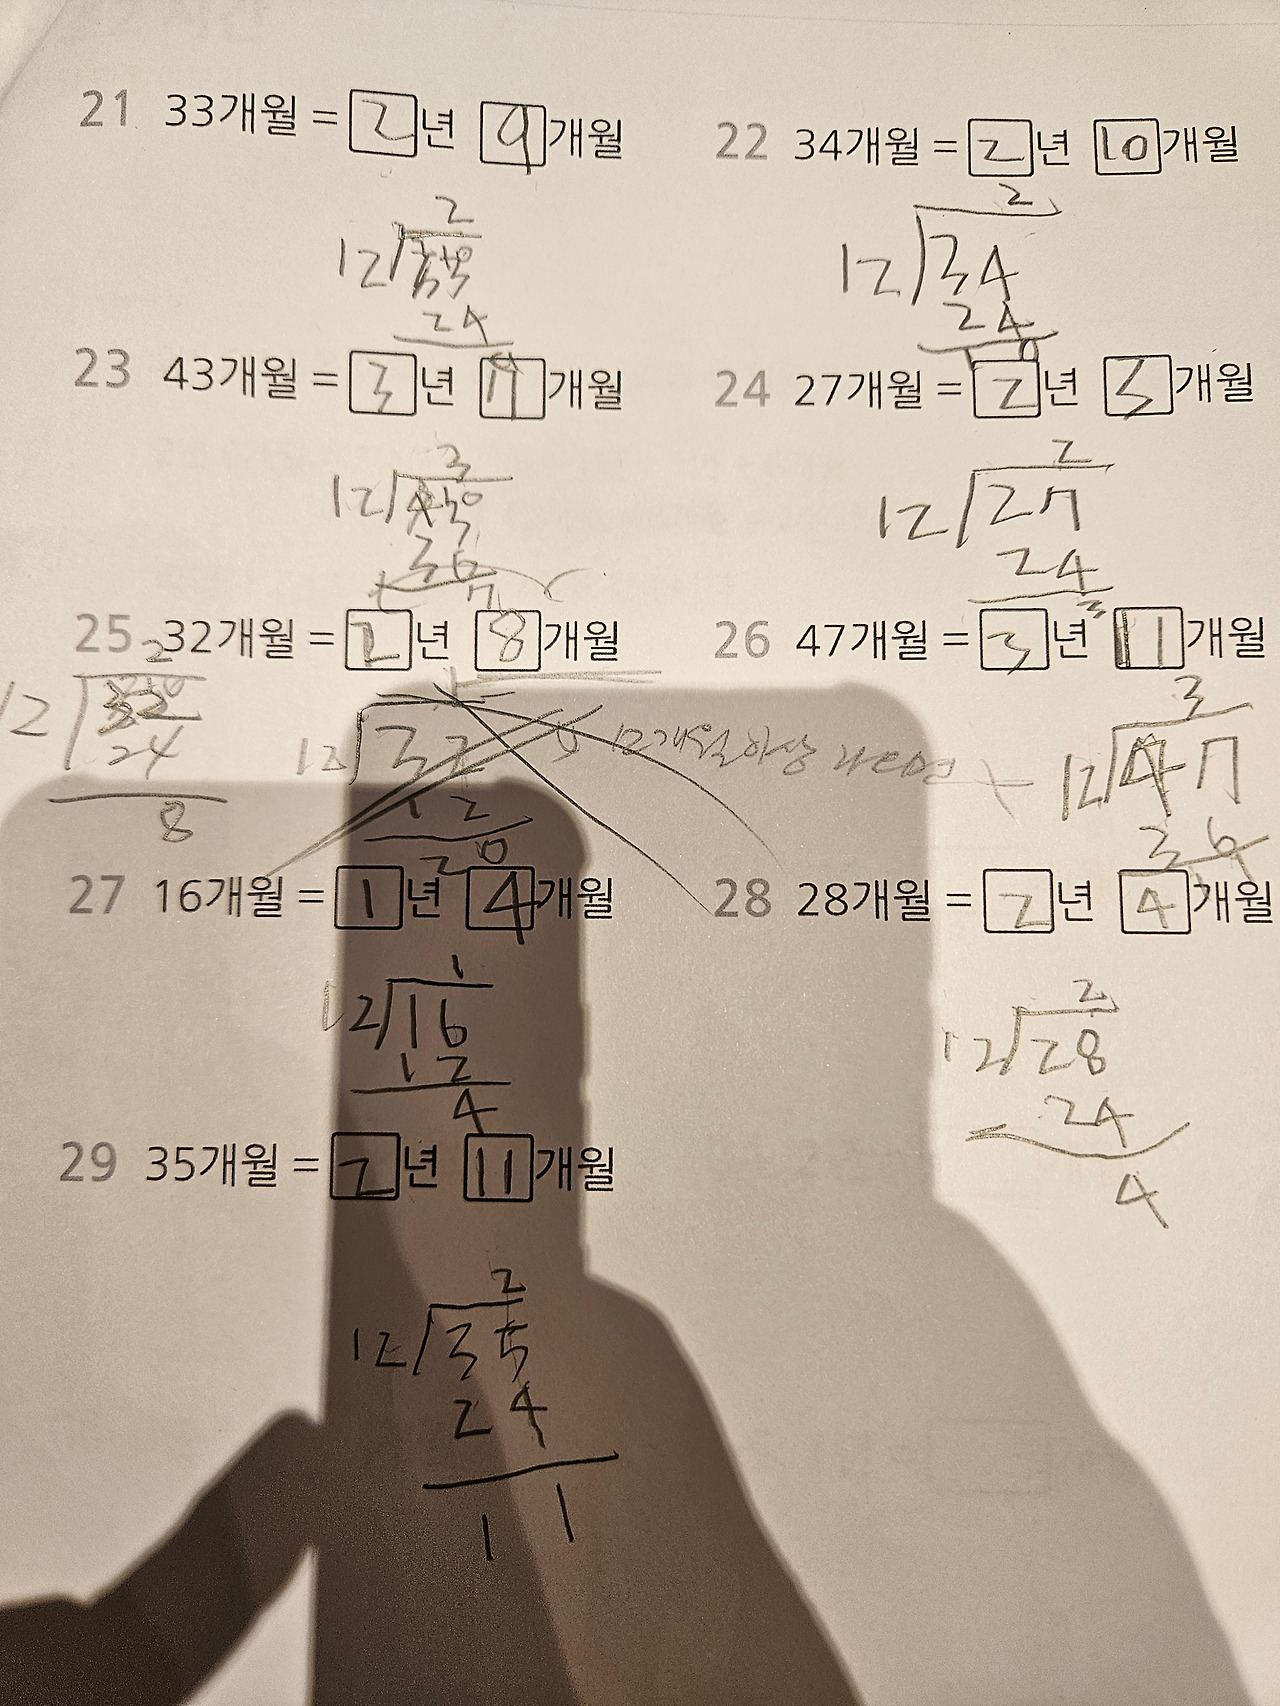 21 33개월 = 2년 9개월
22 34개월 = 2년 10개월
2
12 33
24
9
2
12 34
24
10
23 43개월 = 3년 7개월
24 27개월 = 2년 3개월
3
12 43
36
7
2
12 27
24
3
25 32개월 = 2년 8개월
26 47개월 = 3년 11개월
2
12 32
24
8
12 32
12
20
12개월 이상
3
12 47
36
27 16개월 = 1년 4개월
28 28개월 = 2년 4개월
1
12 16
12
4
2
12 28
24
4
29 35개월 = 2년 11개월
2
12 35
24
11